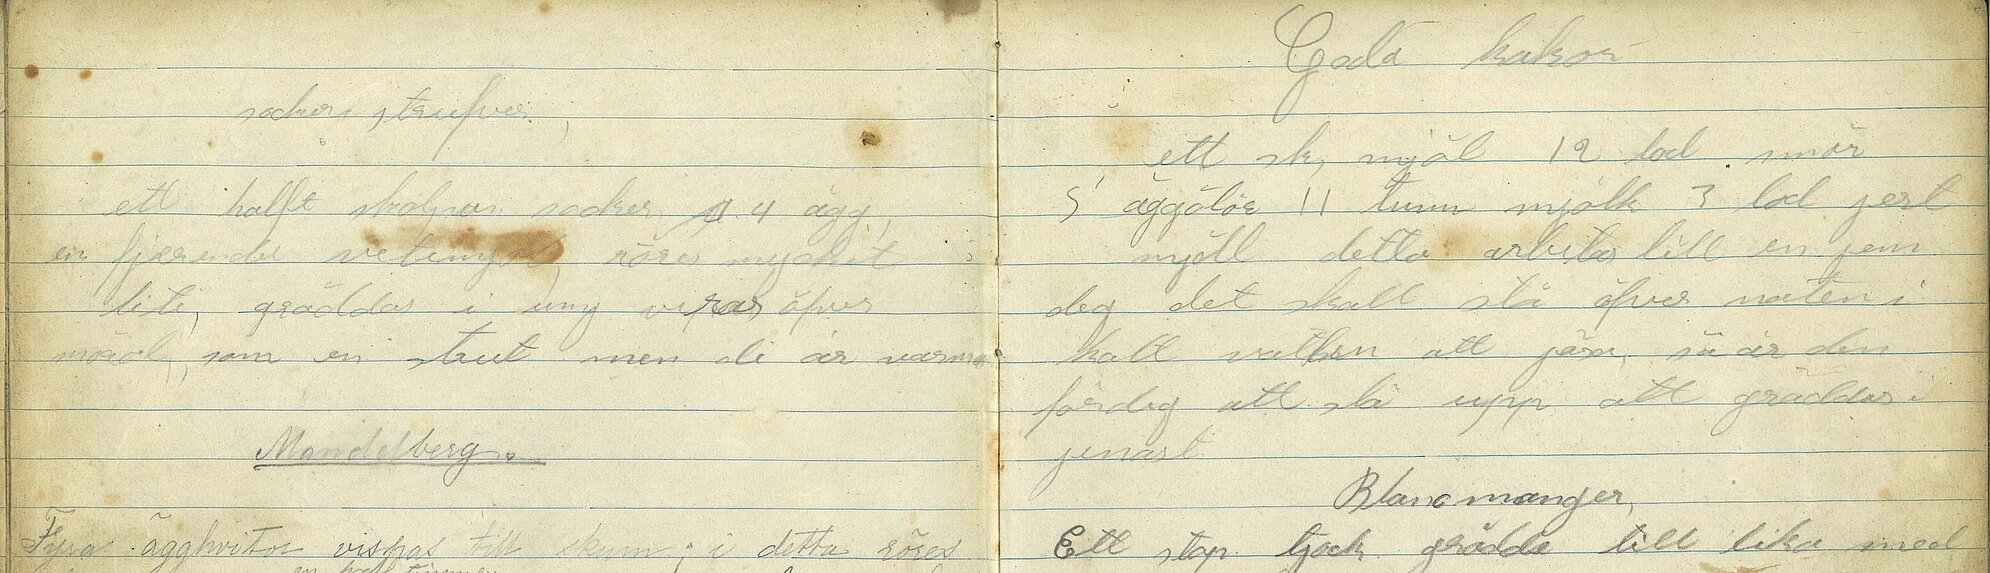 socker strufver,
ett halft skålpun socker 4 ägg,
en fjærendel vetemjöl, röres mycket
lite, gräddas i ung viras öfver
som en strut men de är varma
Mandelberg.
Fyra ägghvitor vispas till skum; i detta röres
Goda kakor
ett sk, mjöl 12 lod smör
5 äggölör 11 tumm mjölk 3 lod jest
mjöll detta arbetas till en jem
deg det skall stå öfver naten i
kalt vatten att jäsa, så är den
färdig att slå upp att gräddas i
jenast
Blancmanger,
Ett stop tjock grädde till lika med